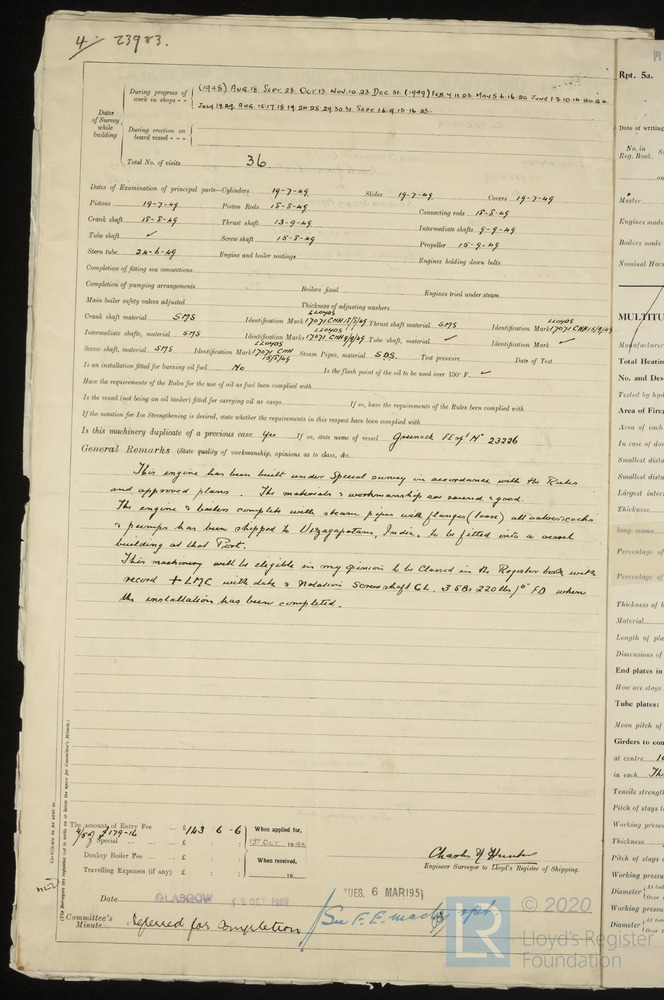 4. 23983.
During progress of work in shops - - (1948) Aug. 18. Sept. 23. Oct. 13 Nov. 10. 23. Dec. 31. (1949) Feb. 4. 11. 23. May 5. 6. 16. 20 June 1. 3. 10. 14. 20
July. 18. 29. Aug. 15. 17. 18. 19. 24. 25. 29. 30. 31. Sept. 1. 6. 9. 13. 16. 23.
Dates of Survey while building
During erection on board vessel - - -
Total No. of visits 36
Dates of Examination of principal parts—Cylinders 19-7-49 Slides 19-7-49 Covers 19-7-49
Pistons 19-7-49 Piston Rods 15-8-49 Connecting rods 15-8-49
Crank shaft 15-8-49 Thrust shaft 13-9-49 Intermediate shafts 9-9-49
Tube shaft ✓ Screw shaft 15-8-49 Propeller 15-9-49
Stern tube 24-6-49 Engine and boiler seatings Engines holding down bolts
Completion of fitting sea connections
Completion of pumping arrangements Boilers fixed Engines tried under steam
Main boiler safety valves adjusted Thickness of adjusting washers
Crank shaft material SMS Identification Mark LLOYDS 17071 CHH 15/8/49 Thrust shaft material SMS Identification Mark LLOYDS 17071 CHH 13/9/49
Intermediate shafts, material SMS Identification Marks LLOYDS 17071 CHH 9/9/49 Tube shaft, material ✓ Identification Mark ✓
Screw shaft, material SMS Identification Mark LLOYDS 17071 CHH 15/8/49 Steam Pipes, material S.D.S. Test pressure Date of Test
Is an installation fitted for burning oil fuel No Is the flash point of the oil to be used over 150°F. ✓
Have the requirements of the Rules for the use of oil as fuel been complied with
Is the vessel (not being an oil tanker) fitted for carrying oil as cargo If so, have the requirements of the Rules been complied with
If the notation for Ice Strengthening is desired, state whether the requirements in this respect have been complied with
Is this machinery duplicate of a previous case Yes If so, state name of vessel Greenock FE rpt No 23226
General Remarks (State quality of workmanship, opinions as to class, &c.
This engine has been built under Special survey in accordance with the Rules
and approved plans. The materials & workmanship are sound & good.
The engine & boilers complete with steam pipes with flanges (loose) all valves & cocks
& pumps has been shipped to Vizagapatam, India, to be fitted into a vessel
building at that Port.
This machinery will be eligible in my opinion to be Classed in the Register book with
record + LMC with date & notation Screw shaft CL. 3 SBs 220 lbs/□" FD when
the installation has been completed.
The amount of Entry Fee ... £ 143 : 6 - 6 When applied for,
4/5 of £179-16
Special ... £ : : 1st Oct 1949
Donkey Boiler Fee ... £ : : When received,
Travelling Expenses (if any) £ : : 19
Engineer Surveyor to Lloyd's Register of Shipping.
Date GLASGOW OCT 1949
TUES. 6 MAR 1951
Committee's Minute Deferred for completion
See F.E. machy rpt.
© 2020
LR
Lloyd's Register
Foundation
Rpt. 5a.
Date of writing
No. in Reg. Book.
Master
Engines made
Boilers made
Nominal Hors
MULTITU
Manufacturer
Total Heatin
No. and Des
Tested by hyd
Area of Fire
Area of each
In case of do
Smallest dista
Smallest dista
Largest inter
Thickness
long. seams
Percentage of
Percentage of
Thickness of b
Material
Length of pla
Dimensions of
End plates in
How are stays
Tube plates:
Mean pitch of
Girders to com
at centre
in each
Tensile strengt
Pitch of stays t
Working press
Thickness
Pitch of stays
Working pressu
Diameter
Working pressu
Diameter